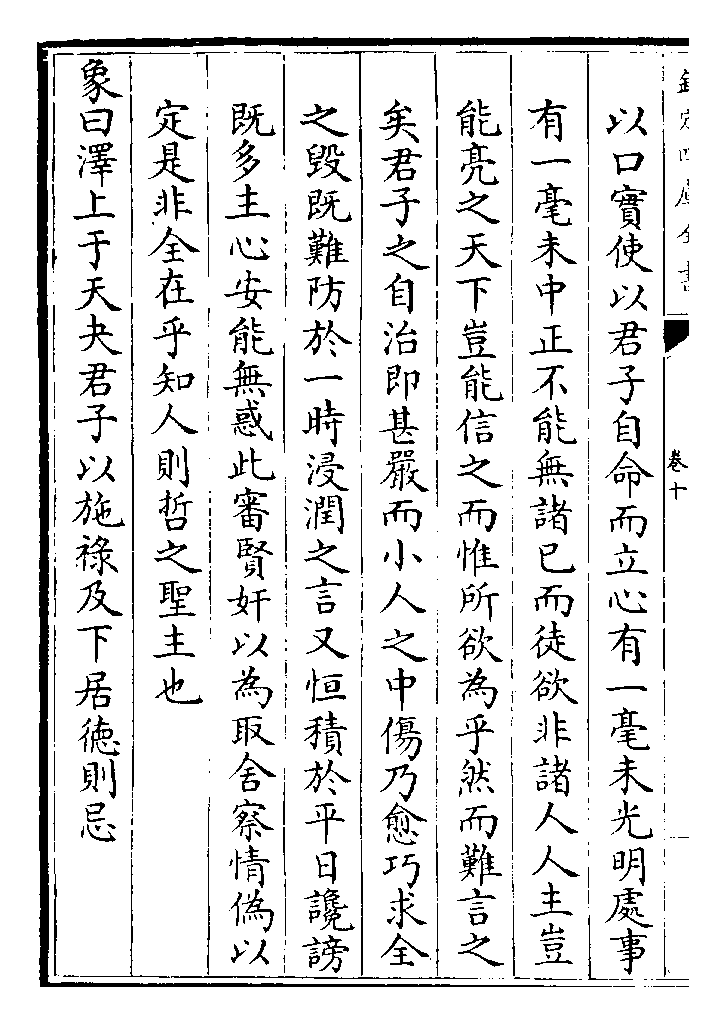 欽定四庫全書
卷十
以口實使以君子自命而立心有一毫未光明處事
有一毫未中正不能無諸已而徒欲非諸人人主豈
能亮之天下豈能信之而惟所欲為乎然而難言之
矣君子之自治即甚嚴而小人之中傷乃愈巧求全
之毁既難防於一時浸潤之言又恒積於平日讒謗
既多主心安能無惑此審賢奸以為取舍察情偽以
定是非全在乎知人則哲之聖主也
象曰澤上于天夬君子以施祿及下居徳則忌